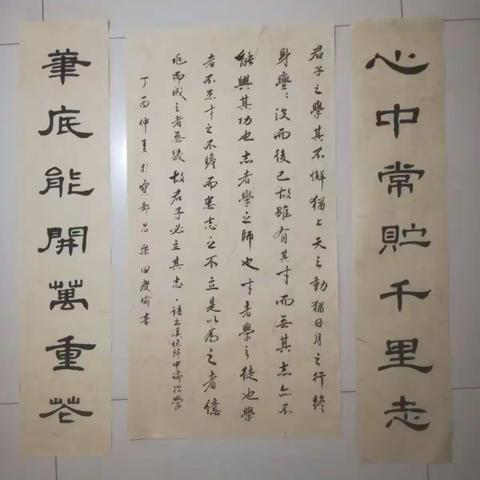 心中常貯千里志
君子之學其不懈猶上天之動猶日月之行終
身亹〻沒而後已故雖有其才而无其志亦不
能興其功也志者學之師也才者學之徒也學
者不患才之不贍而患志之不立是以為之者億
兆而成之者無幾故君子必立其志·語出漢徐幹中論治學
丁酉仲夏於寶都昌樂田慶瑜書
筆底能開萬重花